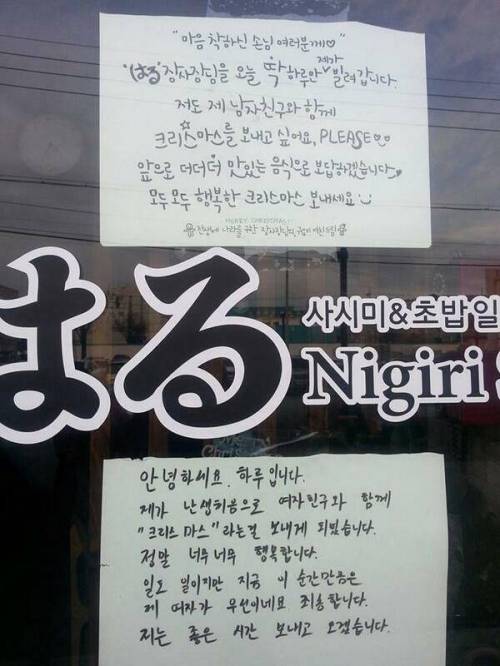 "마음 착하신 손님 여러분께♡"
'はる' 장사장님을 오늘 딱 하루만 제가 빌려갑니다.
저도 제 남자친구와 함께
크리스마스를 보내고 싶어요, PLEASE♡♡
앞으로 더더더 맛있는 음식으로 보답하겠습니다♥
모두 모두 행복한 크리스마스 보내세요 :)
MERRY CHRISTMAS!!
전생에 나라를 구한 장사장님의 여친드림
はる
사시미&초밥일
Nigiri
안녕하세요. 하루 입니다.
제가 난생처음으로 여자친구와 함께
"크리스 마스"라는걸 보내게 되었습니다.
정말 너무너무 행복합니다.
일도 일이지만 지금 이 순간만큼은
제 여자가 우선이네요 죄송합니다.
저는 좋은 시간 보내고 오겠습니다.